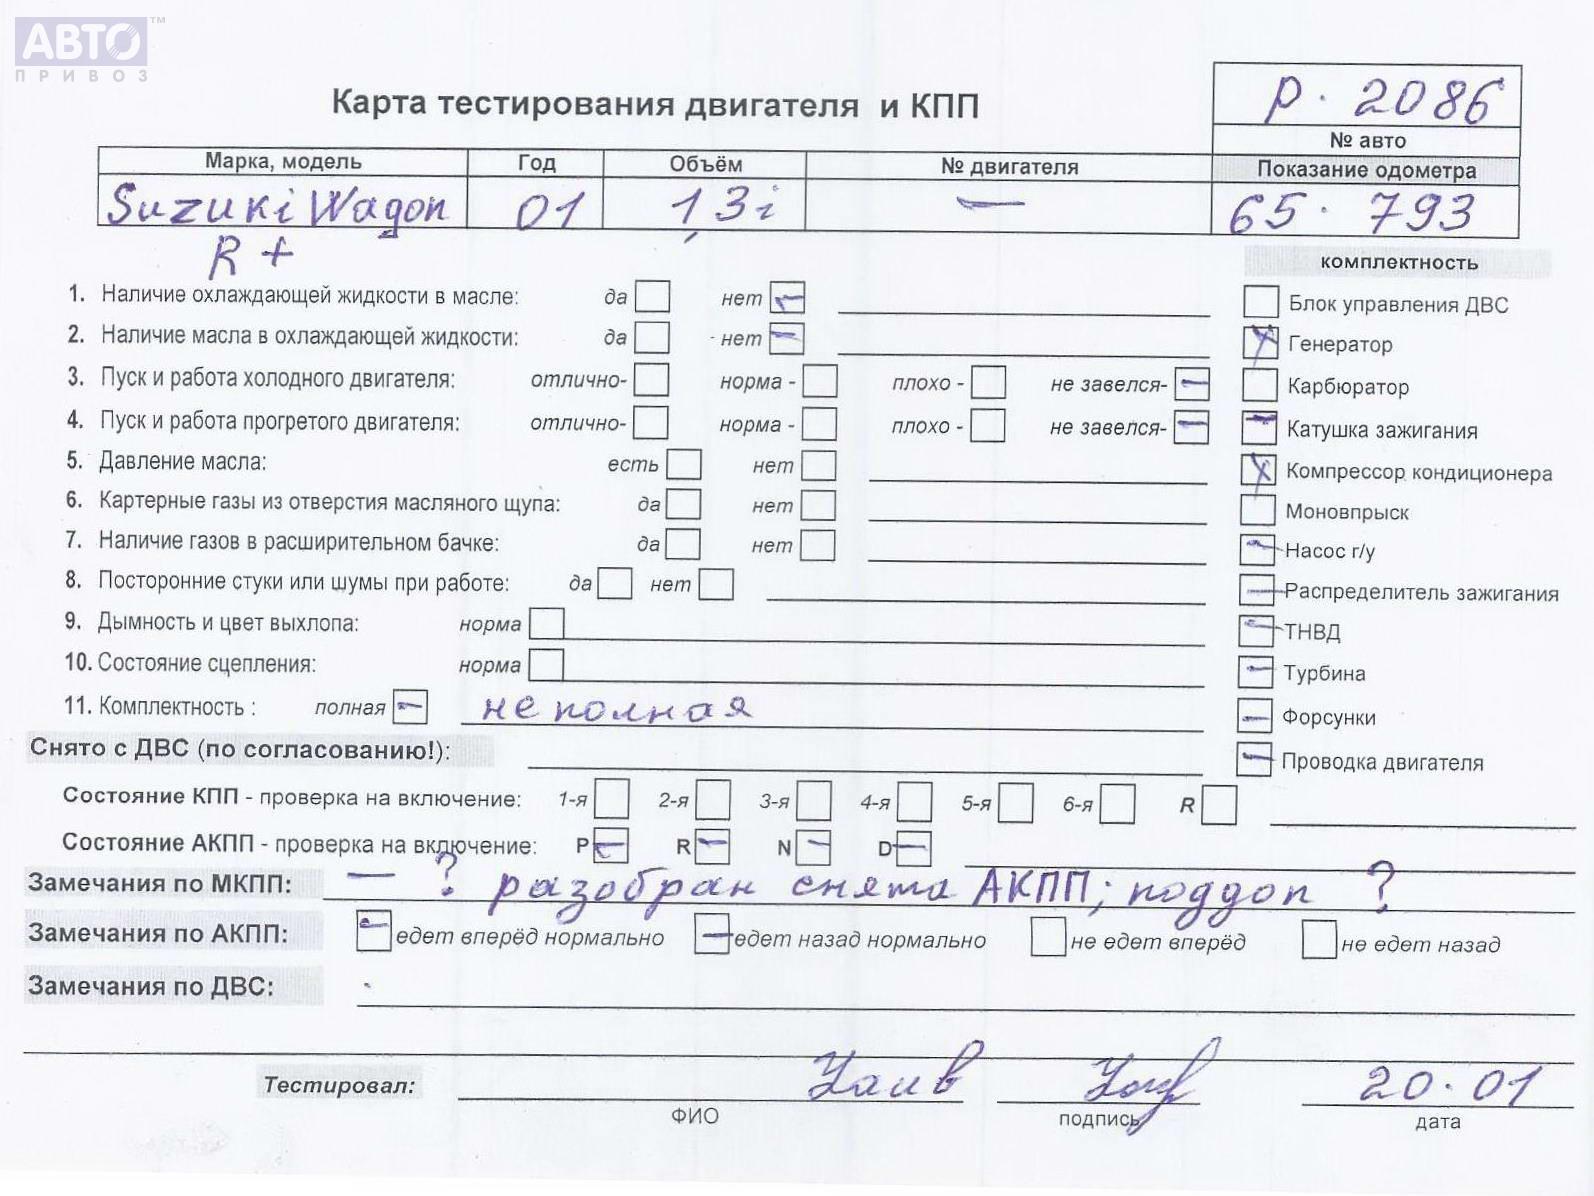 АВТО™
ПРИВОЗ
Карта тестирования двигателя и КПП
р. 2086
№ авто
Марка, модель Год Объём № двигателя Показание одометра
Suzuki Wagon 01 1,3i — 65. 793
R +
комплектность
1. Наличие охлаждающей жидкости в масле: да нет
Блок управления ДВС
2. Наличие масла в охлаждающей жидкости: да нет
Генератор
3. Пуск и работа холодного двигателя: отлично- норма - плохо - не завелся-
Карбюратор
4. Пуск и работа прогретого двигателя: отлично- норма - плохо - не завелся-
Катушка зажигания
5. Давление масла: есть нет
Компрессор кондиционера
6. Картерные газы из отверстия масляного щупа: да нет
Моновпрыск
7. Наличие газов в расширительном бачке: да нет
Насос г/у
8. Посторонние стуки или шумы при работе: да нет
Распределитель зажигания
9. Дымность и цвет выхлопа: норма
ТНВД
10. Состояние сцепления: норма
Турбина
11. Комплектность : полная не полная
Форсунки
Снято с ДВС (по согласованию!):
Проводка двигателя
Состояние КПП - проверка на включение: 1-я 2-я 3-я 4-я 5-я 6-я R
Состояние АКПП - проверка на включение: P R N D
Замечания по МКПП: — ? разобран снята АКПП; поддон ?
Замечания по АКПП: едет вперёд нормально едет назад нормально не едет вперёд не едет назад
Замечания по ДВС:
Тестировал: 20.01
ФИО подпись дата